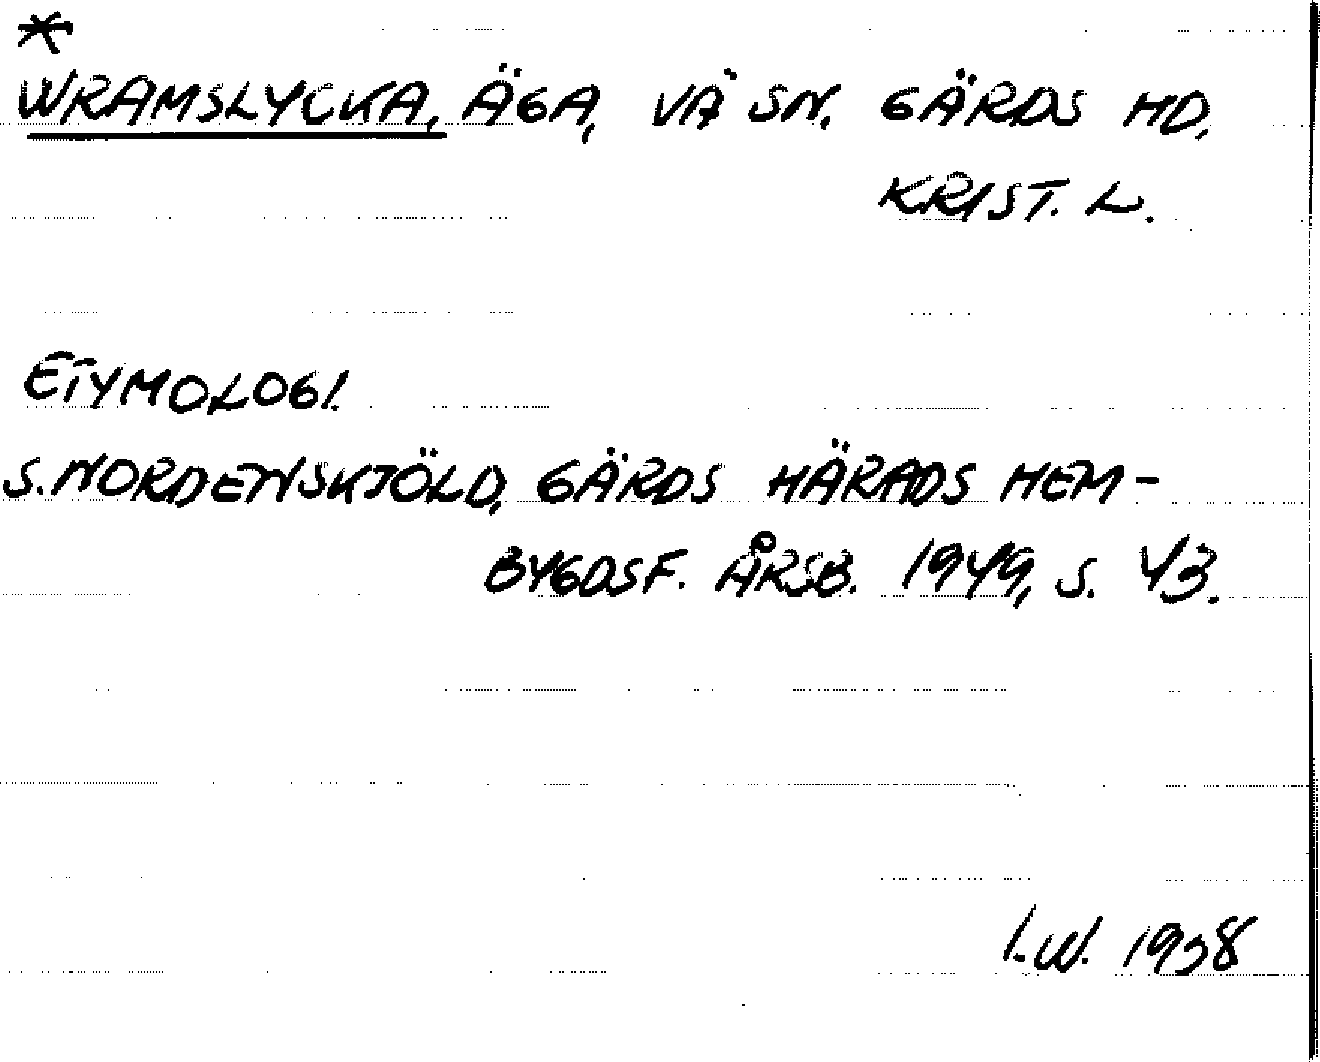 *
WRAMSLYCKA, ÄGA, VÄ SN. GÄRDS HD.
KRIST. L.
ETYMOLOGI.
S. NORDENSKJÖLD, GÄRDS HÄRADS HEM-
BYGDSF. ÅRSB. 1949, S. 43.
I.W.